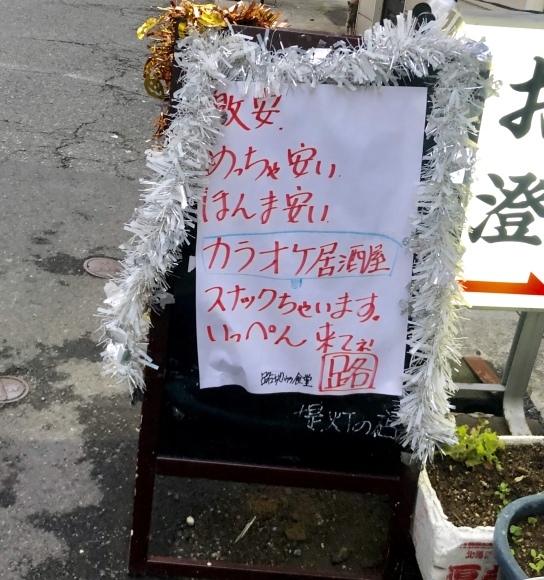 激安.
めっちゃ安い.
ほんま安い.
カラオケ居酒屋
スナックちゃいます。
いっぺん 来てぇ!
路
澄